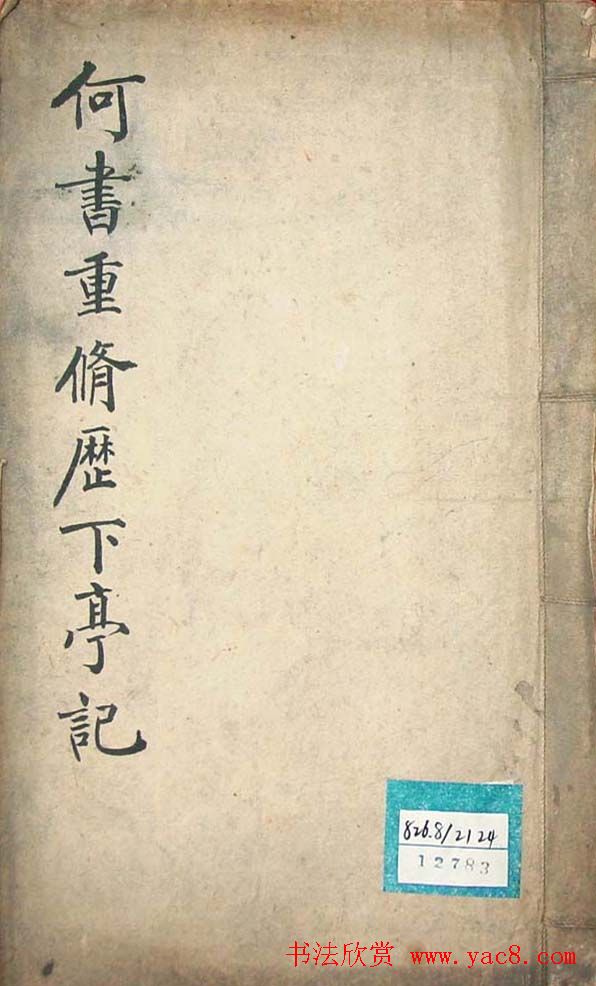 何書重脩歷下亭記
826.8/2124
12783
书法欣赏 www.yac8.com